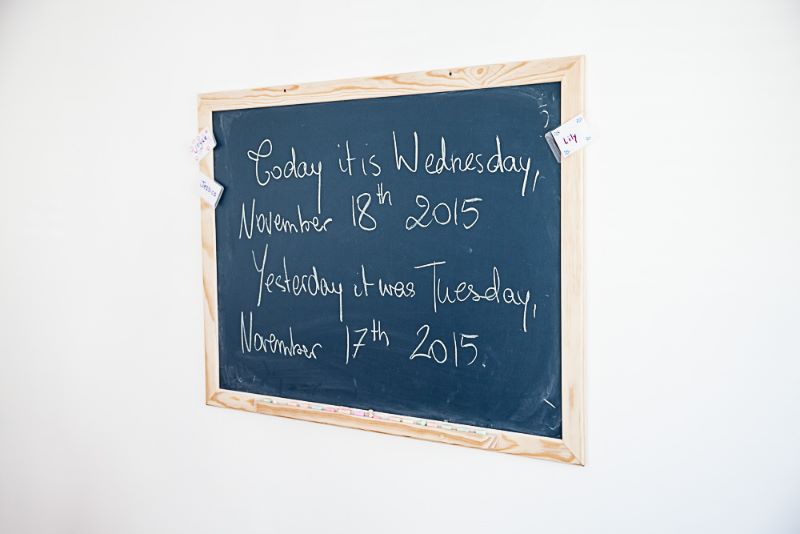 Today it is Wednesday,
November 18th 2015
Yesterday it was Tuesday,
November 17th 2015.
Jessica
Lily